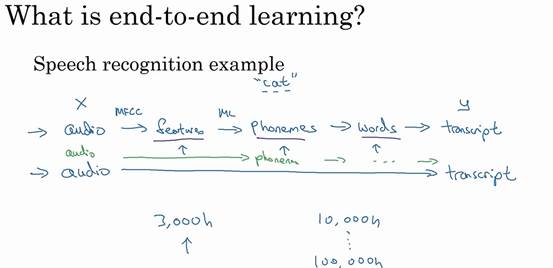 What is end-to-end learning?
Speech recognition example
"cat"
X MFCC ML y
→ audio → features → phonemes → words → transcript
audio → phonemes → ... →
→ audio → transcript
3,000h 10,000h
100,000h